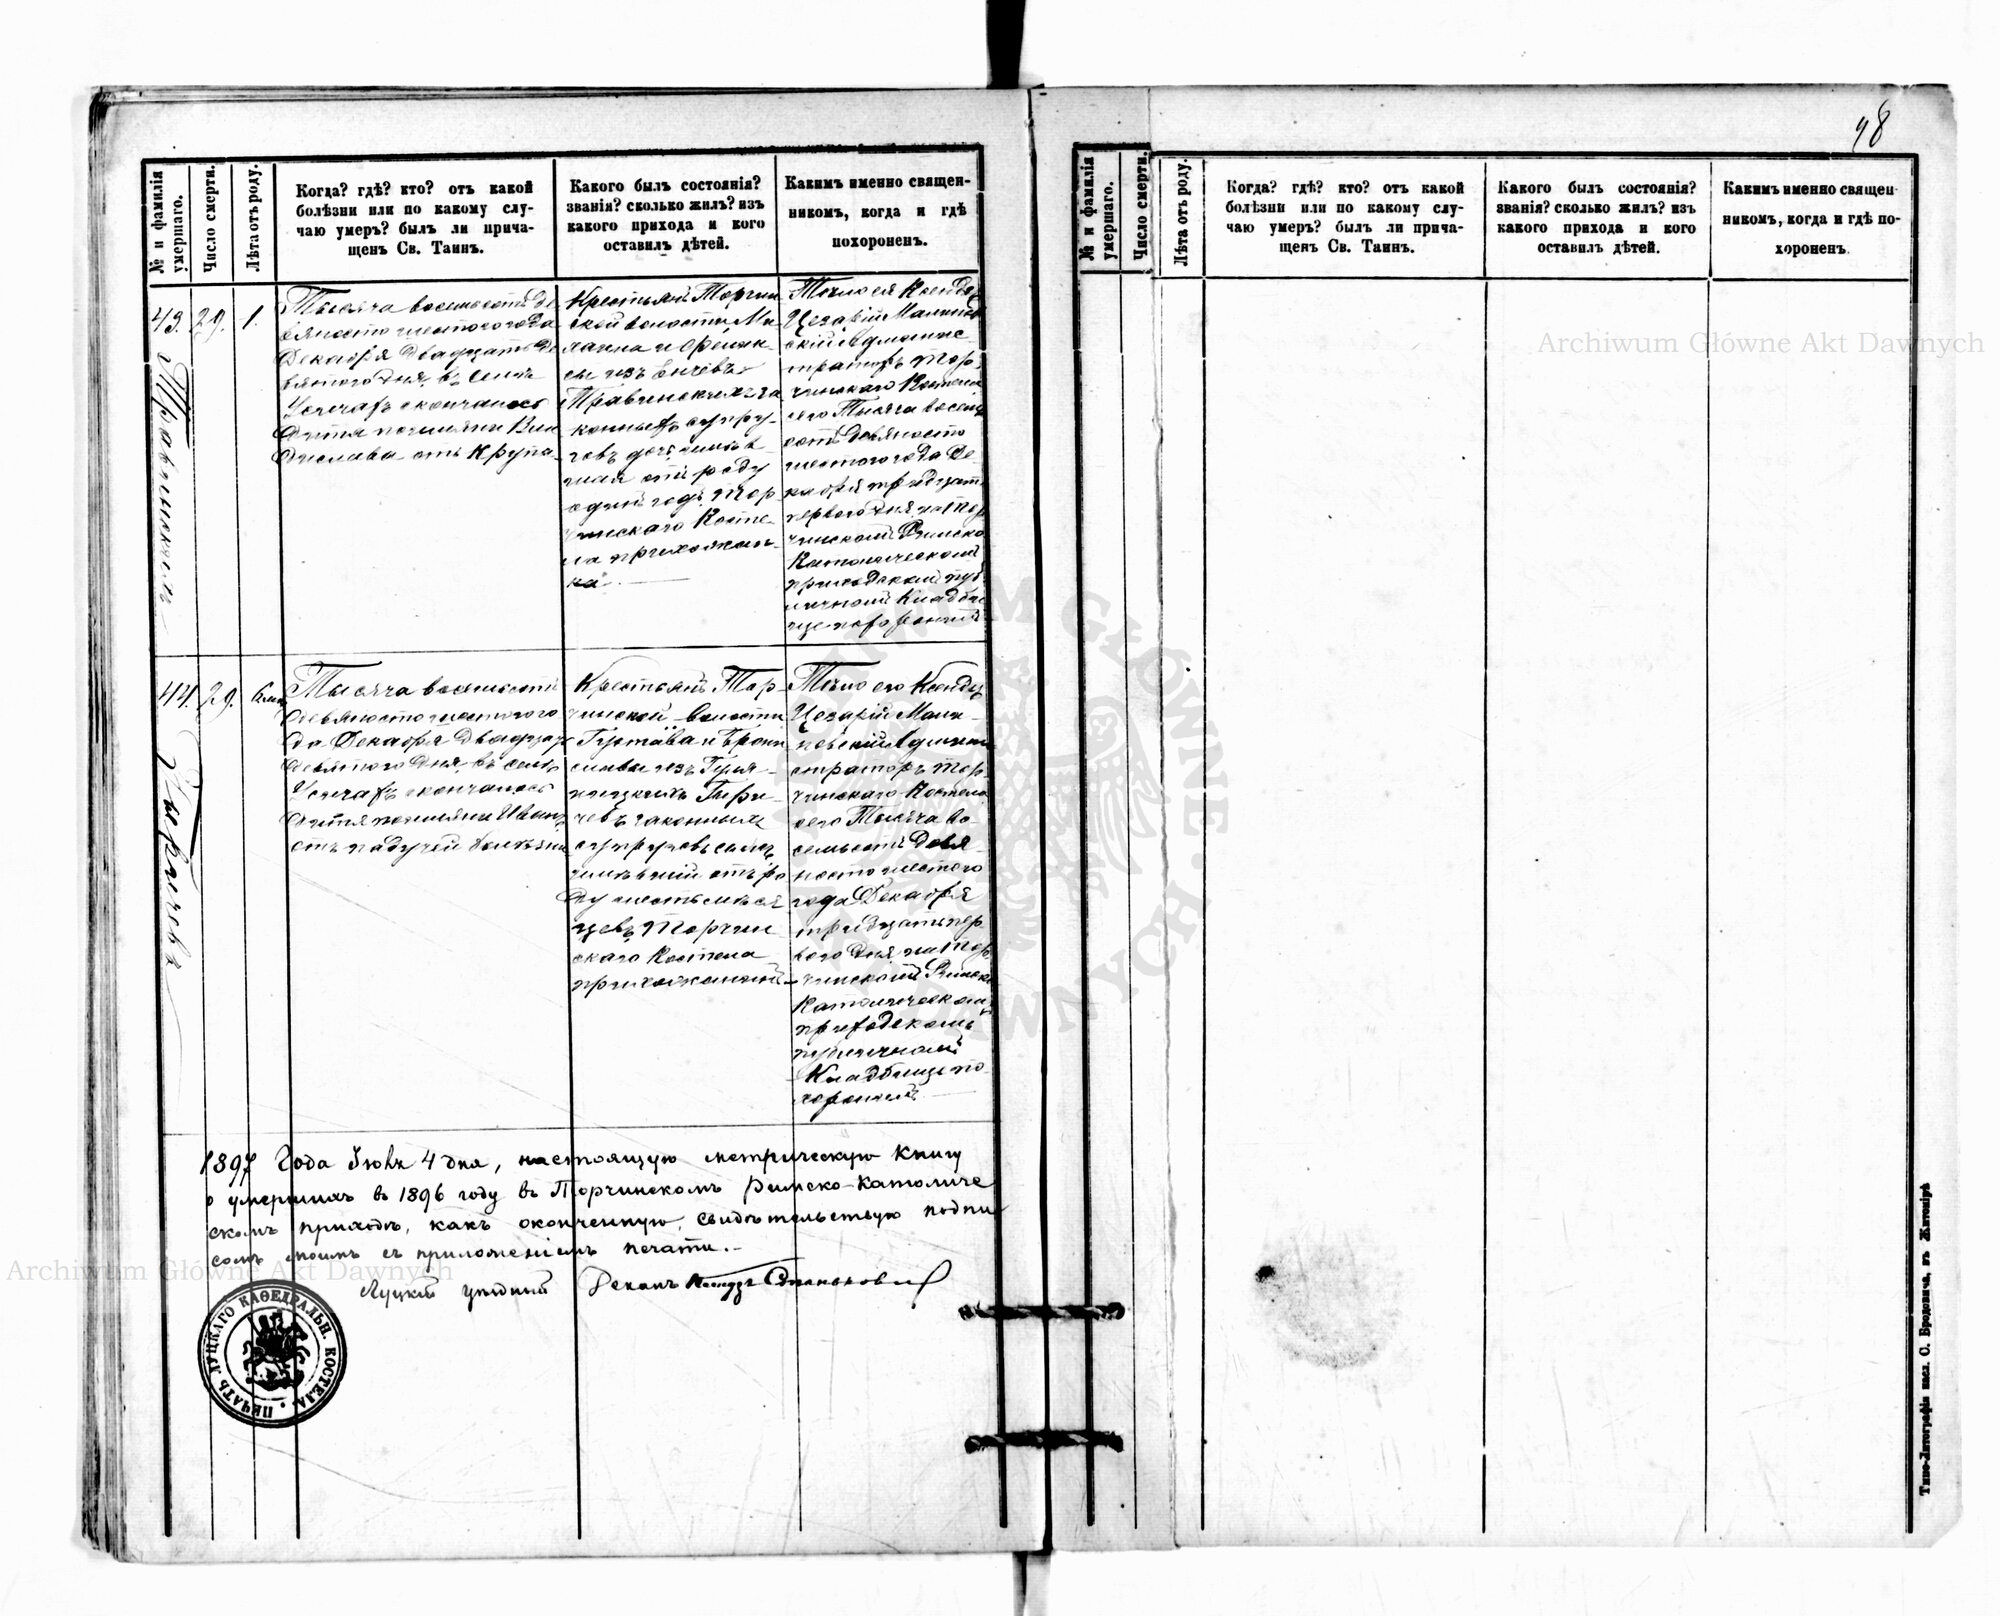 98
№ и фамилія умершаго.
Число смерти.
Лѣта отъ роду.
Когда? гдѣ? кто? отъ какой
болѣзни или по какому слу-
чаю умеръ? былъ ли прича-
щенъ Св. Таинъ.
Какого былъ состоянія?
званія? сколько жилъ? изъ
какого прихода и кого
оставилъ дѣтей.
Какимъ именно священ-
никомъ, когда и гдѣ
похороненъ.
43.
29.
1.
Тысяча восемьсотъ де
вяносто шестого года
Декабря двадцать де
вятого дня, въ селѣ
Усичахъ скончалось
дитя по имени Вла
дислава отъ крупа.
Крестьянъ Торчин
ской волости Ми
и
сы изъ
законныхъ супру-
говъ дочь имѣв
шая отъ роду
одинъ годъ, Тор
чинскаго Косте-
ла прихожан-
ка.
Тѣло ея Ксендзъ
Цезарій Малинов
скій Админис
траторъ Тор-
чинскаго Костела
сего Тысяча восемь
сотъ девяносто
шестого года Де-
кабря тридцать
первого дня, на Тор
чинскомъ Римско
Католическомъ
приходскомъ пуб
личномъ Кладби
ще похоронилъ
44.
29.
6 мѣс
Тысяча восемьсотъ
девяносто шестого го
да Декабря двадцать
девятого дня, въ селѣ
Усичахъ скончалось
дитя по имени Иванъ
отъ падучей болѣзни
Крестьянъ Тор-
чинской волости
Густава и Брони
славы изъ
законныхъ
супруговъ сынъ,
имѣвшій отъ ро
ду шесть мѣся
цевъ, Торчин
скаго Костела
прихожанинъ
Тѣло его Ксендзъ
Цезарій Мали-
новскій Админи
страторъ Тор-
чинскаго Костела
сего Тысяча во
семьсотъ Девя
носто шестого
года Декабря
тридцать пер
вого дня, на Тор
чинскомъ Римско
Католическомъ
приходскомъ
публичномъ
Кладбище по
хоронилъ
1897 года Іюня 4 дня, настоящую метрическую книгу
о умершихъ въ 1896 году въ Торчинскомъ Римско-Католиче
скомъ приходѣ, какъ оконченную, свидѣтельствую подпи
сомъ моимъ съ приложеніемъ печати.-
Луцкій уѣздный Деканъ Ксендзъ
ПЕЧАТЬ ЛУЦКАГО КАѲЕДРАЛЬН. КОСТЕЛА.
№ и фамилія умершаго.
Число смерти.
Лѣта отъ роду.
Когда? гдѣ? кто? отъ какой
болѣзни или по какому слу-
чаю умеръ? былъ ли прича-
щенъ Св. Таинъ.
Какого былъ состоянія?
званія? сколько жилъ? изъ
какого прихода и кого
оставилъ дѣтей.
Какимъ именно священ-
никомъ, когда и гдѣ по-
хороненъ.
Типо-Литографія насл. С. Бродовича, въ Житомірѣ
Archiwum Główne Akt Dawnych
Archiwum Główne Akt Dawnych